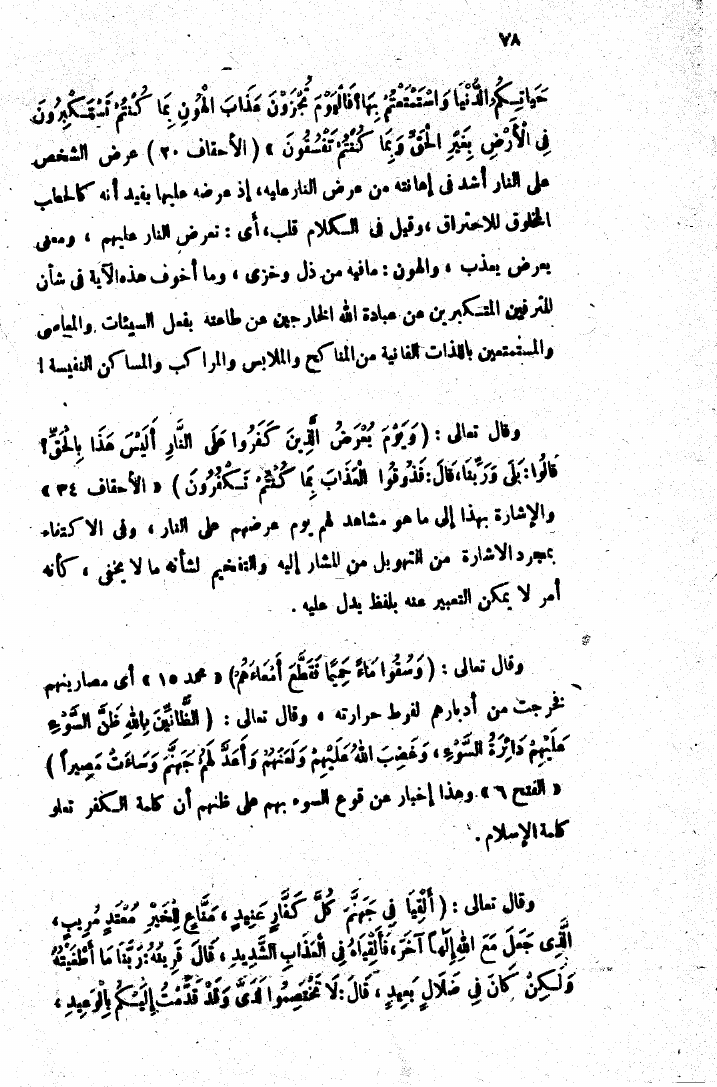 ٧٨
حَيَاتِكُمُ الدُّنْيَا وَاسْتَمْتَعْتُمْ بِهَا؟ فَالْيَوْمَ تُجْزَوْنَ عَذَابَ الْهُونِ بِمَا كُنْتُمْ تَسْتَكْبِرُونَ
فِى الْأَرْضِ بِغَيْرِ الْحَقِّ وَبِمَا كُنْتُمْ تَفْسُقُونَ » ( الأحقاف ٢٠ ) عرض الشخص
على النار أشد فى إهانته من عرض النار عليه، إذ عرضه عليها يفيد أنه كالحطب
المخلوق للاحتراق ، وقيل فى الكلام قلب، أى : تعرض النار عليهم ، ومعنى
يعرض يعذب ، والهون : مافيه من ذل وخزى ، وما أخوف هذه الآية فى شأن
المترفين المتكبرين عن عبادة الله الخارجين عن طاعته بفعل السيئات والمعاصى
والمستمتعين باللذات الفانية من المناكح والملابس والمراكب والمساكن النفيسة !
وقال تعالى : ( وَيَوْمَ يُعْرَضُ الَّذِينَ كَفَرُوا عَلَى النَّارِ أَلَيْسَ هَذَا بِالْحَقِّ؟
قَالُوا: بَلَى وَرَبِّنَا، قَالَ: فَذُوقُوا الْعَذَابَ بِمَا كُنْتُمْ تَكْفُرُونَ ) « الأحقاف ٣٤ »
والإشارة بهذا إلى ما هو مشاهد لهم يوم عرضهم على النار ، وفى الاكتفاء
بمجرد الاشارة من التهويل من المشار إليه والتفخيم لشأنه ما لا يخفى ، كأنه
أمر لا يمكن التعبير عنه بلفظ يدل عليه .
وقال تعالى : ( وَسُقُوا مَاءً حَمِيمًا فَقَطَّعَ أَمْعَاءَهُمْ) « محمد ١٥ » أى مصارينهم
فخرجت من أدبارهم لفرط حرارته ، وقال تعالى : ( الظَّانِّينَ بِاللهِ ظَنَّ السَّوْءِ
عَلَيْهِمْ دَائِرَةُ السَّوْءِ ، وَغَضِبَ اللهُ عَلَيْهِمْ وَلَعَنَهُمْ وَأَعَدَّ لَهُمْ جَهَنَّمَ وَسَاءَتْ مَصِيراً )
« الفتح ٦ » وهذا إخبار عن قوع السوء بهم على ظنهم أن كلمة الكفر تعلو
كلمة الإسلام .
وقال تعالى : ( أَلْقِيَا فِى جَهَنَّمَ كُلَّ كَفَّارٍ عَنِيدٍ ، مَنَّاعٍ لِلْخَيْرِ مُعْتَدٍ مُرِيبٍ ،
الَّذِى جَعَلَ مَعَ اللهِ إِلَهاً آخَرَ، فَأَلْقِيَاهُ فِى الْعَذَابِ الشَّدِيدِ ، قَالَ قَرِينُهُ: رَبَّنَا مَا أَطْغَيْتُهُ
وَلَكِنْ كَانَ فِى ضَلَالٍ بَعِيدٍ ، قَالَ: لَا تَخْتَصِمُوا لَدَىَّ وَقَدْ قَدَّمْتُ إِلَيْكُمْ بِالْوَعِيدِ ،